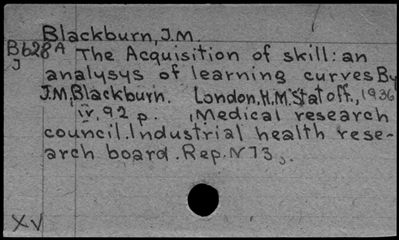 Blackburn, J.M.
B628A The Acquisition of skill: an
J analysys of learning curves By
J.M. Blackburn. London. H.M. Stat off., 1936
iv. 92 p. (Medical research
council. Industrial health rese-
arch board. Rep. N 73).
XV